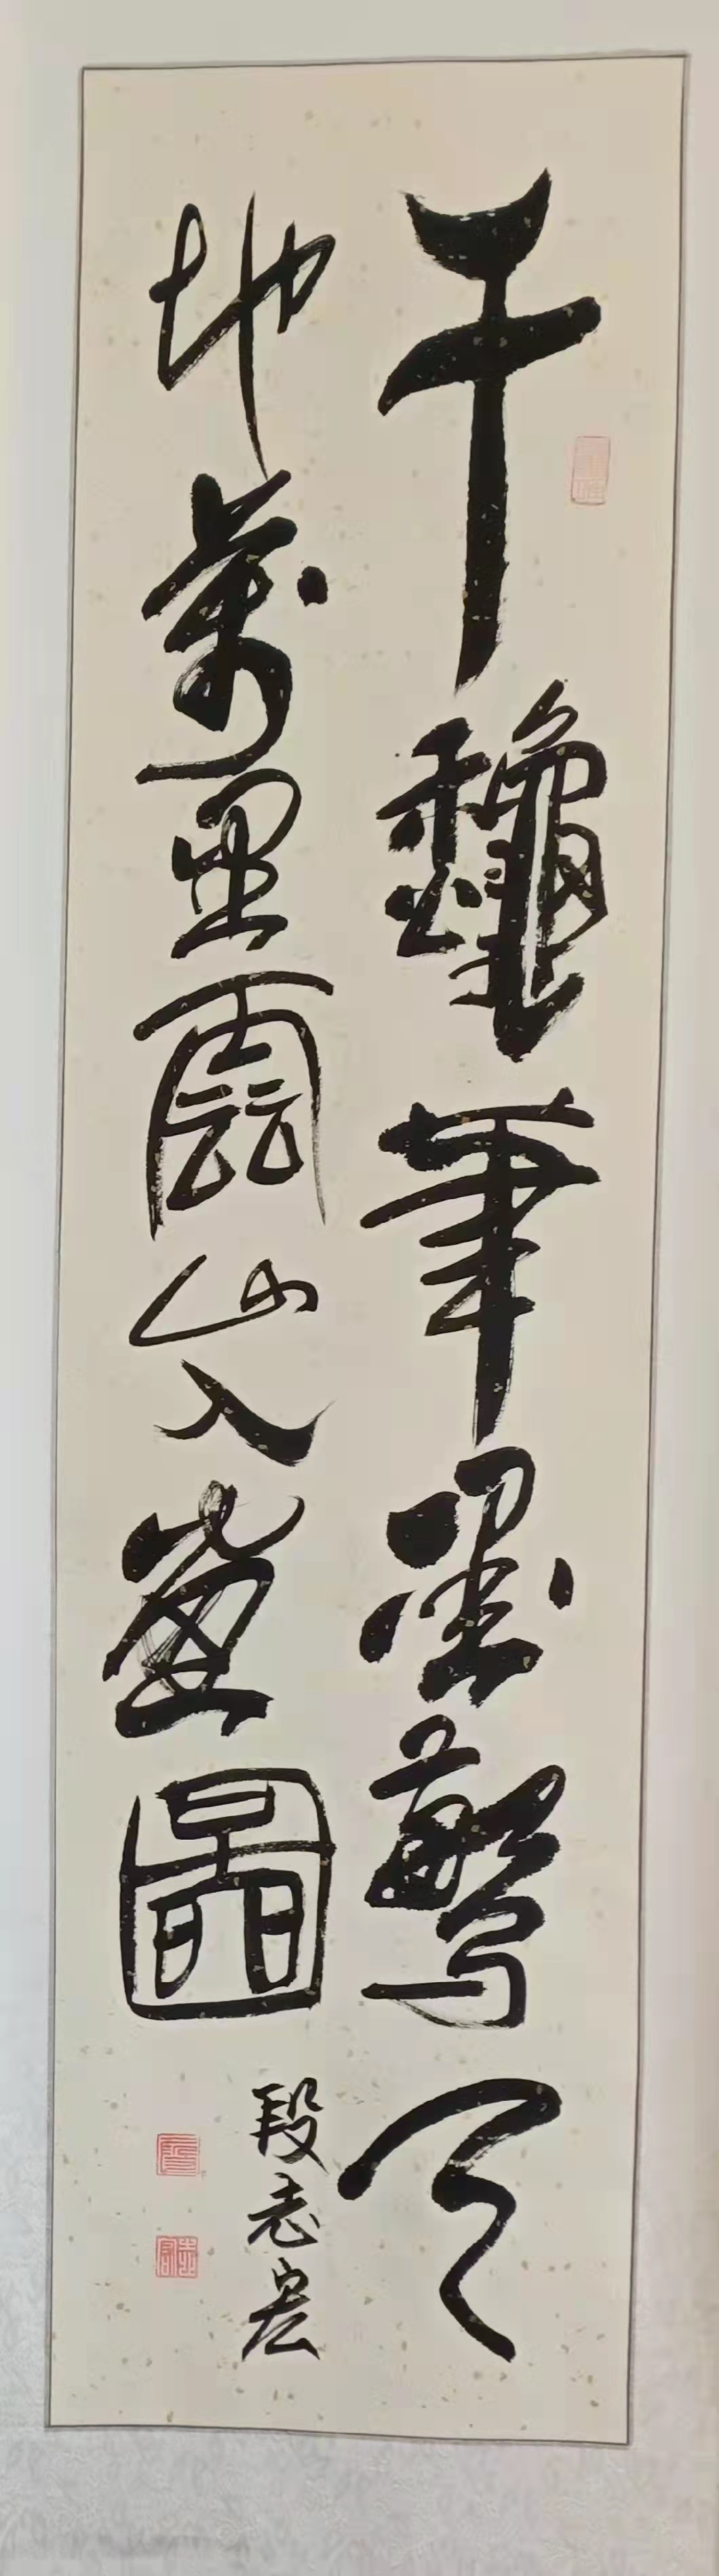 千龝筆墨驚天
地萬里雲山入畫圖
段志宏